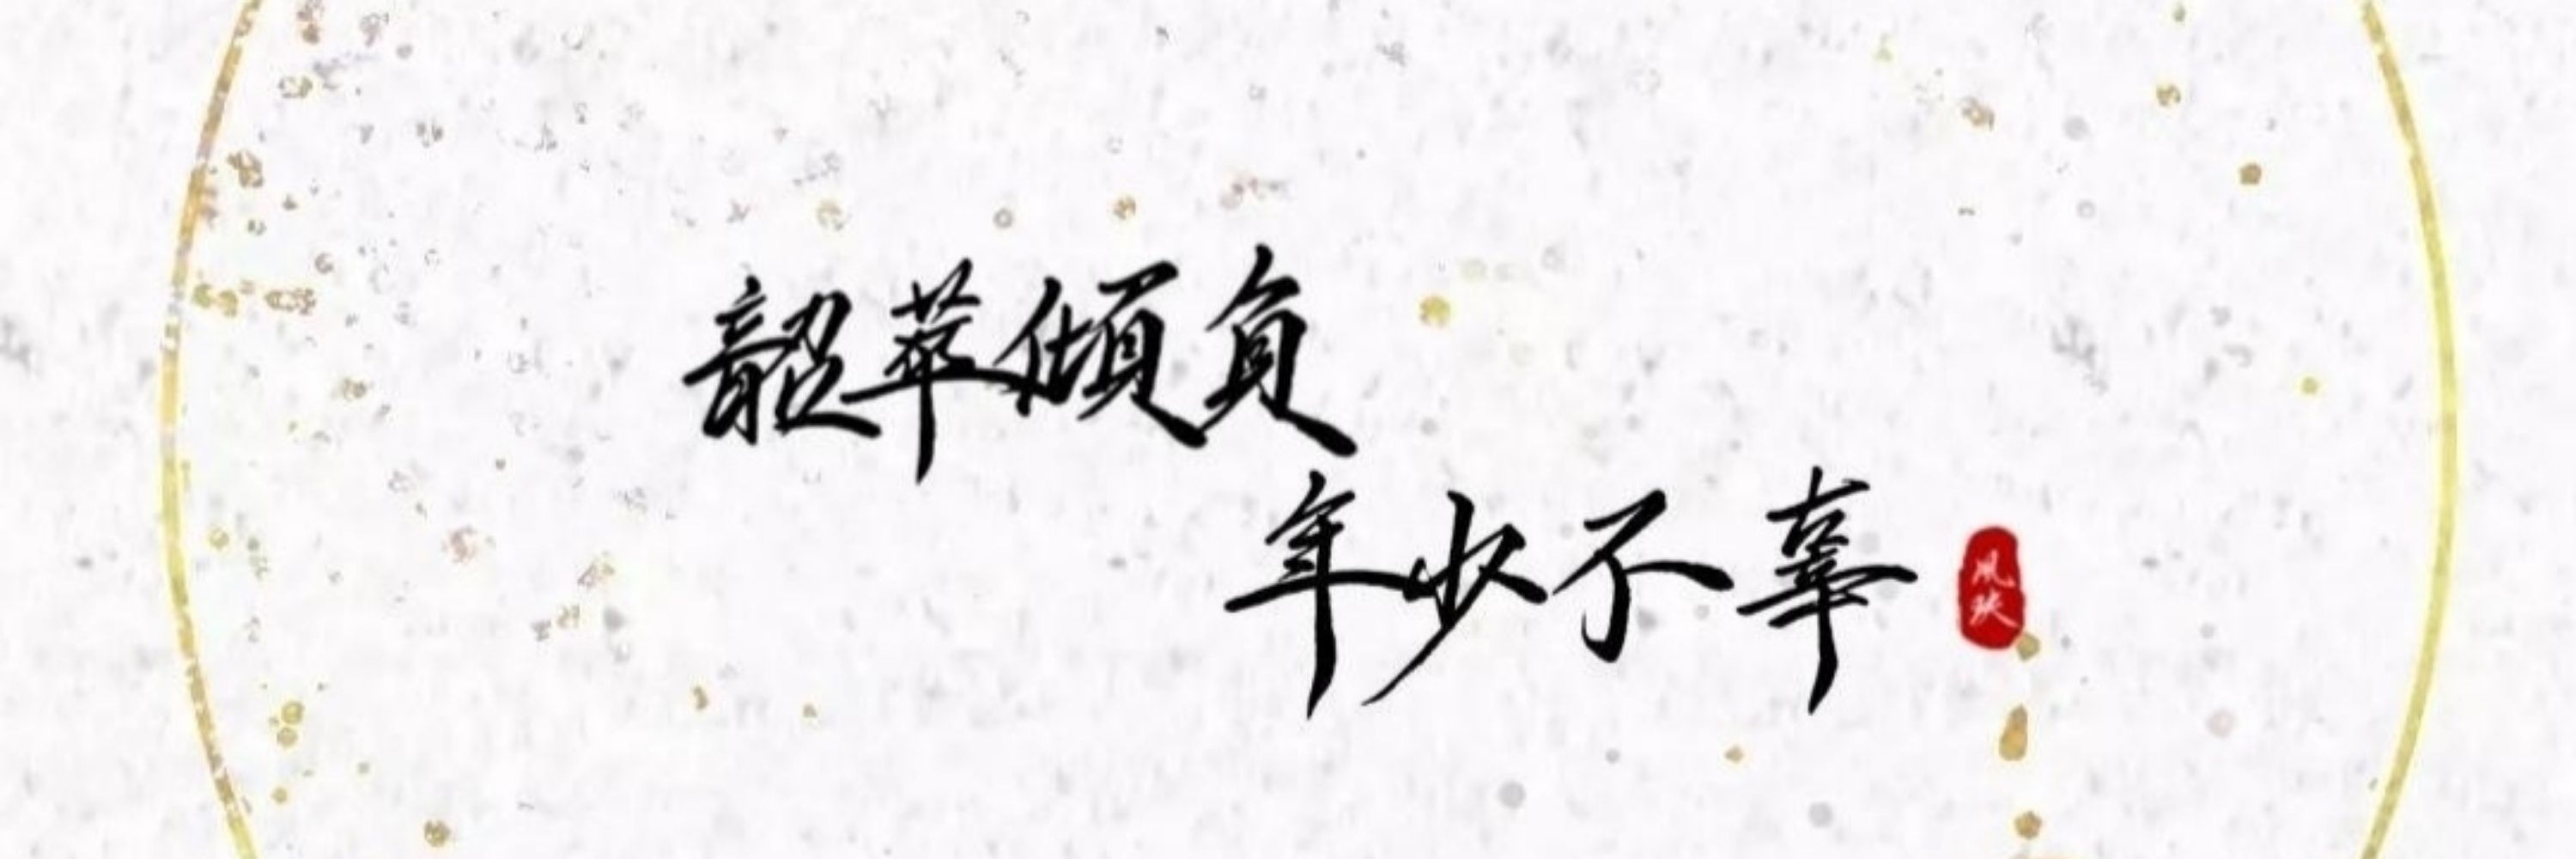 韶萃傾負
年少不辜
風玦